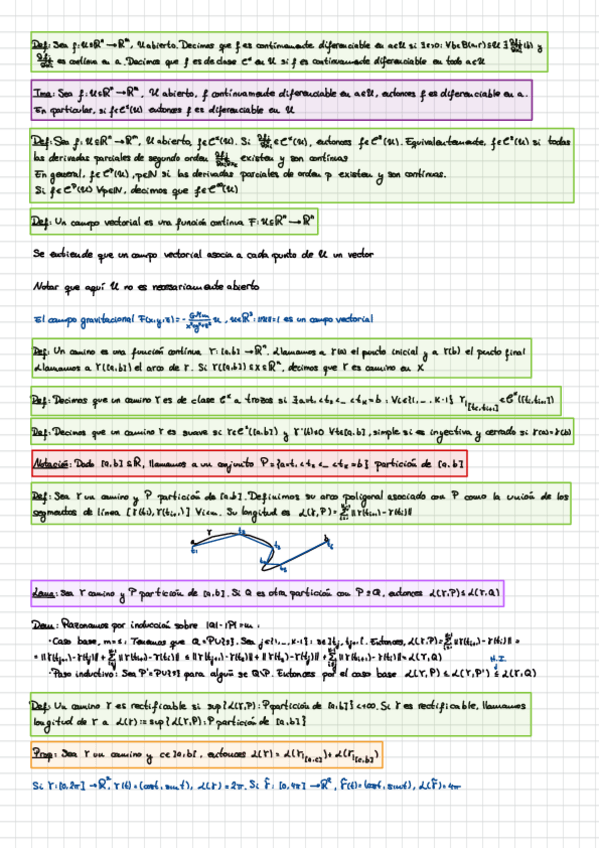 Def: Sea f: U⊆ℝⁿ → ℝᵐ, U abierto. Decimos que f es continuamente diferenciable en a∈U si ∃r>0: ∀b∈B(a,r)⊆U ∃ ∂fⱼ/∂xᵢ(b) y
∂fⱼ/∂xᵢ es continua en a. Decimos que f es de clase C¹ en U si f es continuamente diferenciable en todo a∈U
Tma: Sea f: U⊆ℝⁿ → ℝᵐ, U abierto, f continuamente diferenciable en a∈U, entonces f es diferenciable en a.
En particular, si f∈C¹(U) entonces f es diferenciable en U
Def: Sea f: U⊆ℝⁿ → ℝᵐ, U abierto, f∈C¹(U). Si ∂fⱼ/∂xᵢ∈C¹(U), entonces f∈C²(U). Equivalentemente, f∈C²(U) si todas
las derivadas parciales de segundo orden existen y son continuas
En general, f∈Cᵖ(U), p∈ℕ si las derivadas parciales de orden p existen y son continuas.
Si f∈Cᵖ(U) ∀p∈ℕ, decimos que f∈C^∞(U)
Def: Un campo vectorial es una función continua F: U⊆ℝⁿ → ℝⁿ
Se entiende que un campo vectorial asocia a cada punto de U un vector
Notar que aquí U no es necesariamente abierto
El campo gravitacional F(x,y,z) = - GMm/(x²+y²+z²) u, u∈ℝ³: ||u||=1 es un campo vectorial
Def: Un camino es una función continua γ: [a,b] → ℝⁿ. Llamamos a γ(a) el punto inicial y a γ(b) el punto final
Llamamos a γ([a,b]) el arco de γ. Si γ([a,b])⊆X⊆ℝⁿ, decimos que γ es camino en X
Def: Decimos que un camino γ es de clase Cᵏ a trozos si ∃a=t₁<t₂<…<t_K=b: ∀i∈{1,…,K-1} γ|[tᵢ,tᵢ₊₁]∈Cᵏ([tᵢ,tᵢ₊₁])
Def: Decimos que un camino γ es suave si γ∈C¹([a,b]) y γ'(t)≠0 ∀t∈[a,b], simple si es inyectiva y cerrado si γ(a)=γ(b)
Notación: Dado [a,b]⊆ℝ, llamamos a un conjunto P={a=t₁<t₂<…<t_K=b} partición de [a,b]
Def: Sea γ un camino y P partición de [a,b]. Definimos su arco poligonal asociado con P como la unión de los
segmentos de línea [γ(tᵢ),γ(tᵢ₊₁)] Su longitud es L(γ,P)=Σ||γ(tᵢ₊₁)-γ(tᵢ)||
a γ t₂ t₃ b
t₁
Lema: Sea γ camino y P partición de [a,b]. Si Q es otra partición con P⊆Q, entonces L(γ,P)≤L(γ,Q)
Dem: Razonamos por inducción sobre |Q|-|P|=m:
·Caso base, m=1: Tenemos que Q=P∪{s}. Sea j∈{1,…,K-1}: s∈]tⱼ,tⱼ₊₁[. Entonces, L(γ,P)=Σ||γ(tᵢ₊₁)-γ(tᵢ)|| =
= ||γ(tⱼ₊₁)-γ(tⱼ)|| + Σ||γ(tᵢ₊₁)-γ(tᵢ)|| ≤ ||γ(tⱼ₊₁)-γ(s)|| + ||γ(s)-γ(tⱼ)|| + Σ||γ(tᵢ₊₁)-γ(tᵢ)|| = L(γ,Q)
H.I.
·Paso inductivo: Sea P'=P∪{s} para algún s∈Q\P. Entonces por el caso base L(γ,P) ≤ L(γ,P') ≤ L(γ,Q)
Def: Un camino γ es rectificable si sup{L(γ,P): P partición de [a,b]}<+∞. Si γ es rectificable, llamamos
longitud de γ a L(γ):=sup{L(γ,P): P partición de [a,b]}
Prop: Sea γ un camino y c∈]a,b[, entonces L(γ)=L(γ|[a,c])+L(γ|[c,b])
Si γ: [0,2π] → ℝ², γ(t)=(cost,sint), L(γ)=2π. Si γ̃: [0,4π] → ℝ², γ̃(t)=(cost,sint), L(γ̃)=4π